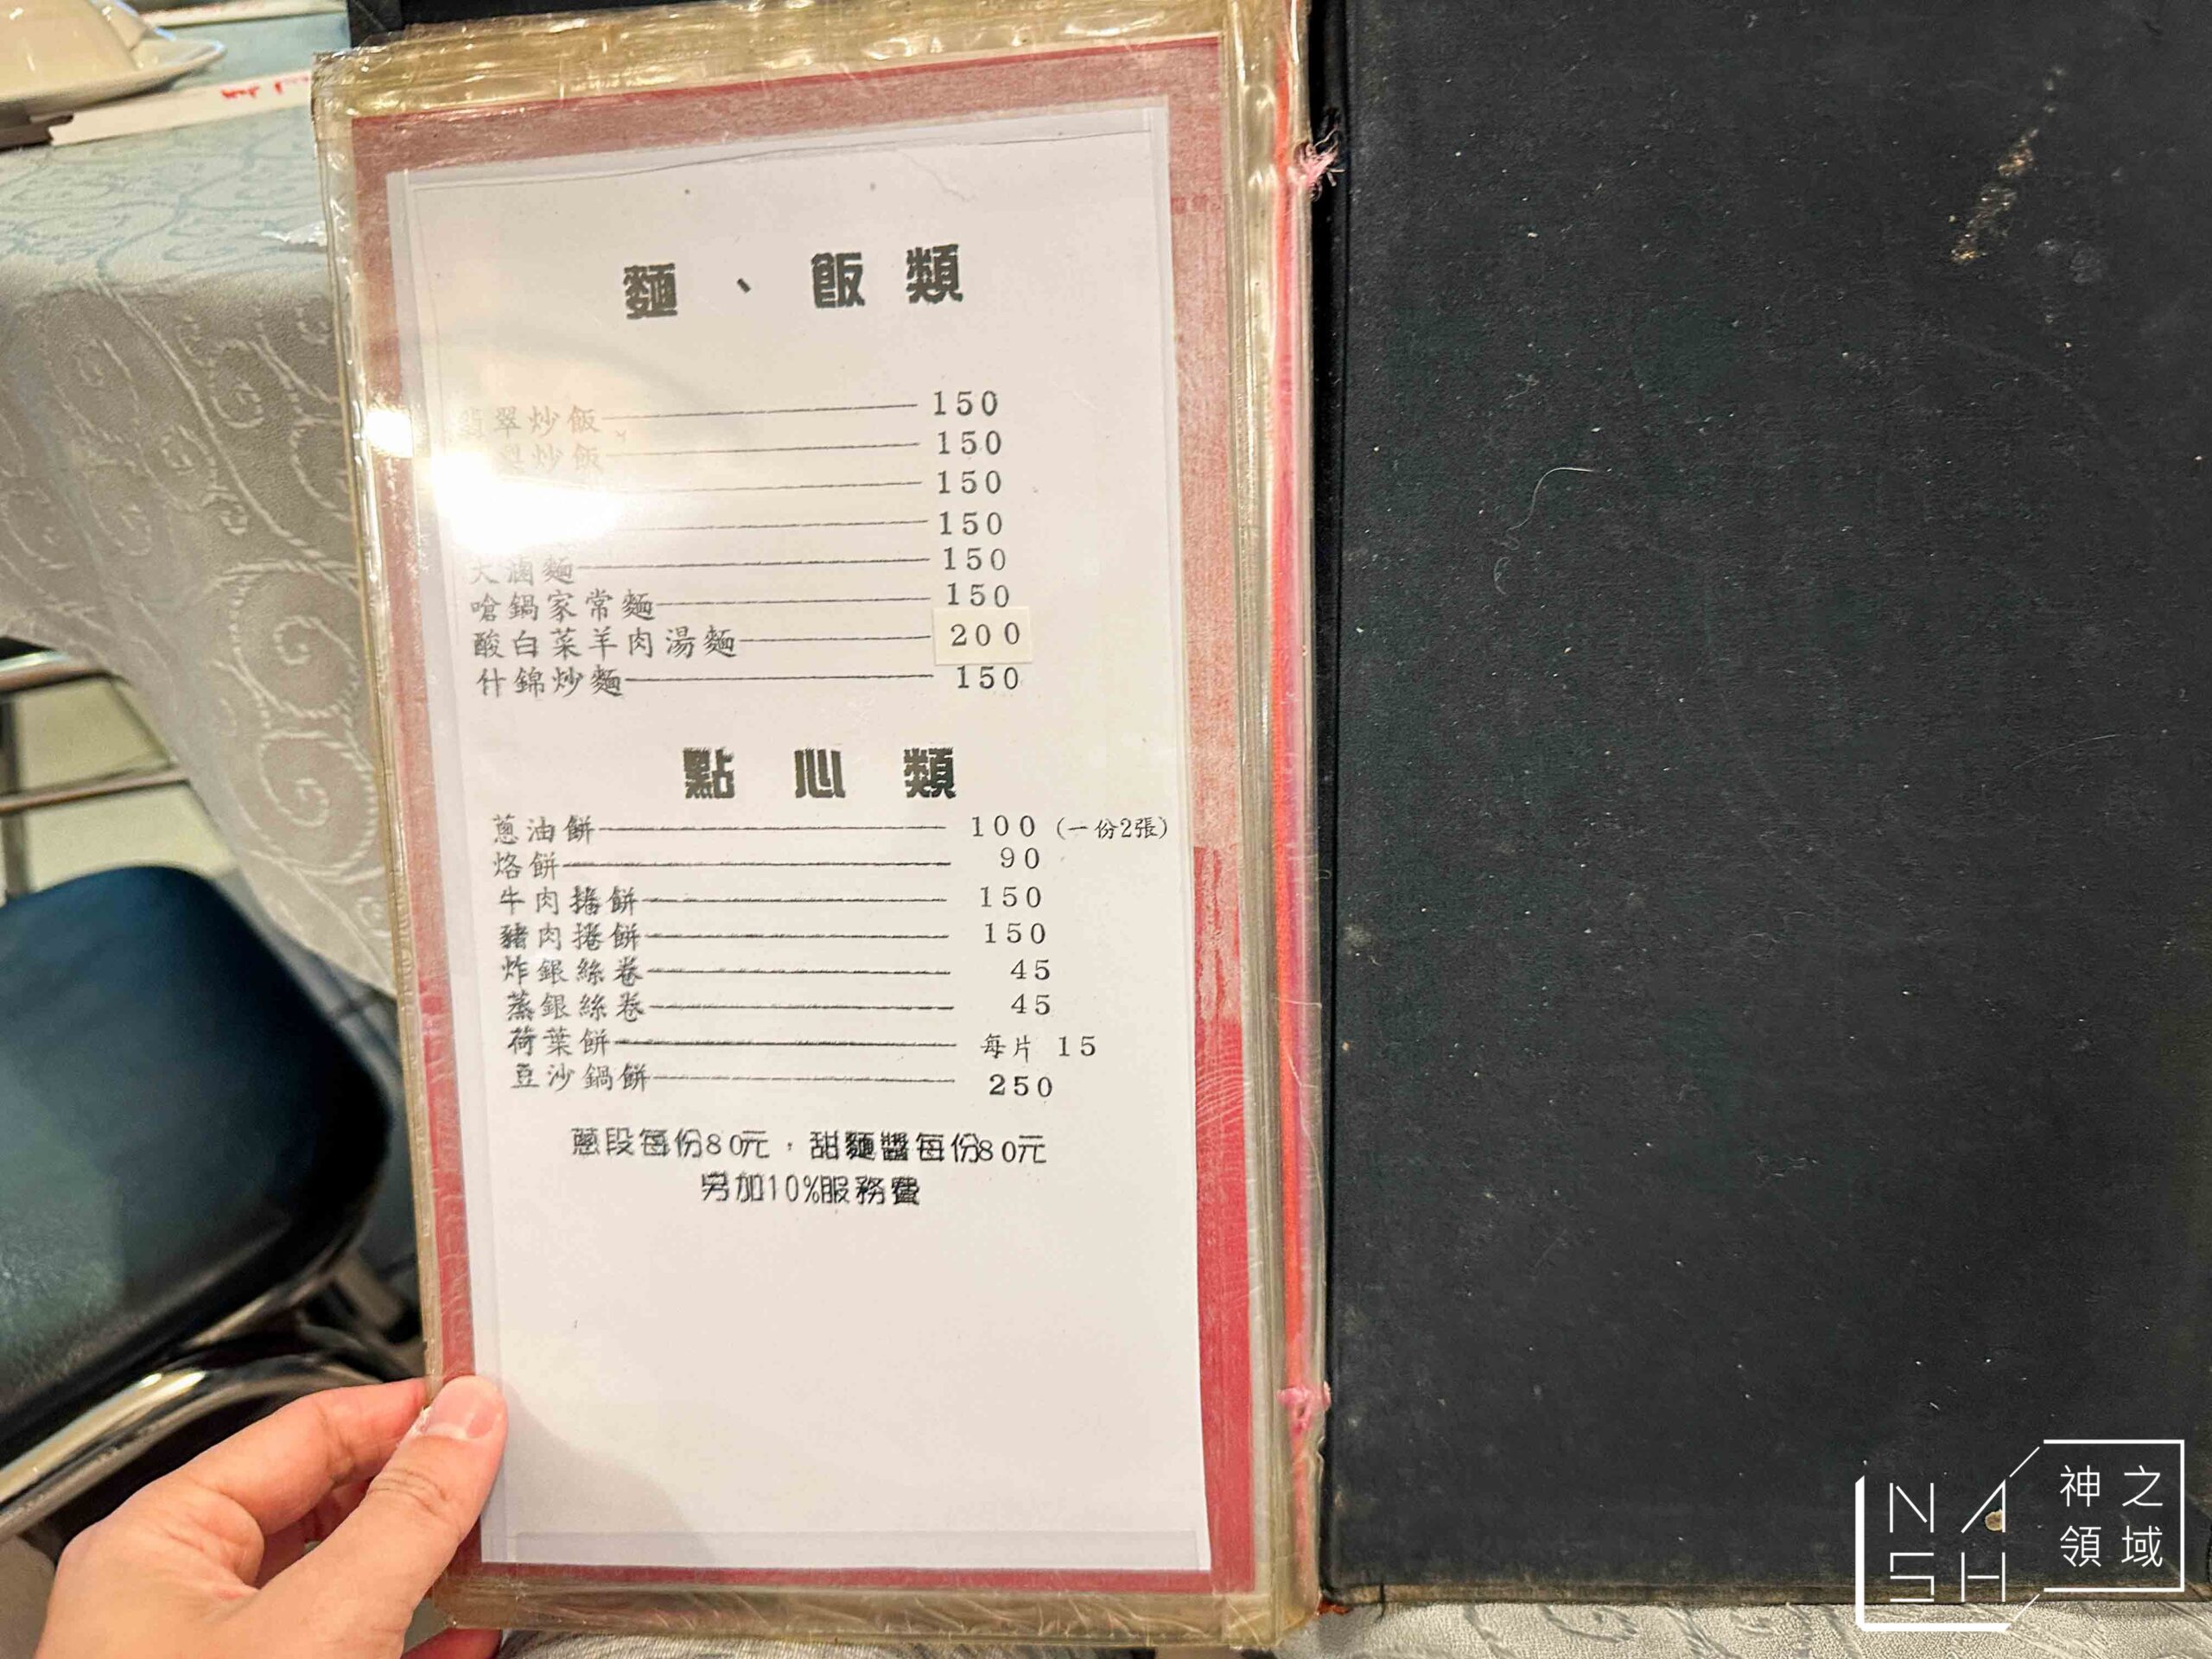 麵、飯類
翡翠炒飯 150
炒飯 150
150
150
大滷麵 150
嗆鍋家常麵 150
酸白菜羊肉湯麵 200
什錦炒麵 150
點心類
蔥油餅 100 (一份2張)
烙餅 90
牛肉捲餅 150
豬肉捲餅 150
炸銀絲卷 45
蒸銀絲卷 45
荷葉餅 每片 15
豆沙鍋餅 250
蔥段每份80元,甜麵醬每份80元
另加10%服務費
NASH
神之領域